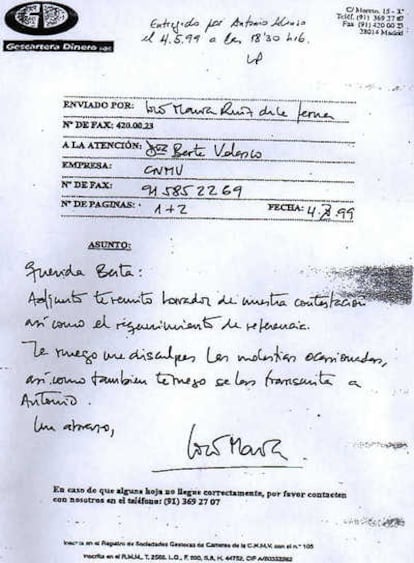 C/ Moreto, 15 - 3°
Teléf. (91) 369 27 07
Fax (91) 420 00 23
28014 Madrid
Gescartera Dinero
Entregado por Antonio Alonso
el 4.5.99 a las 18'30
ENVIADO POR: José Maura Ruiz de la
Nº DE FAX: 420.00.23
A LA ATENCIÓN: Berta Velasco
EMPRESA: CNMV
Nº DE FAX: 91 585 22 69
Nº DE PAGINAS: 1+2 FECHA: 4. .99
ASUNTO:
Querida Berta:
Adjunto te remito borrador de nuestra contestación
así como el requerimiento de referencia.
Te ruego me disculpes las molestias ocasionadas,
así como también te ruego se las transmita a
Antonio.
Un abrazo,
Maura
En caso de que alguna hoja no llegue correctamente, por favor contacten
con nosotros en el teléfono: (91) 369 27 07
Inscrita en el Registro de Sociedades Gestoras de Carteras de la C.N.M.V. con el n.° 105
Inscrita en el R.M.M., T. 2566, L.O., F. 800, S.8, H. 44752, CIF